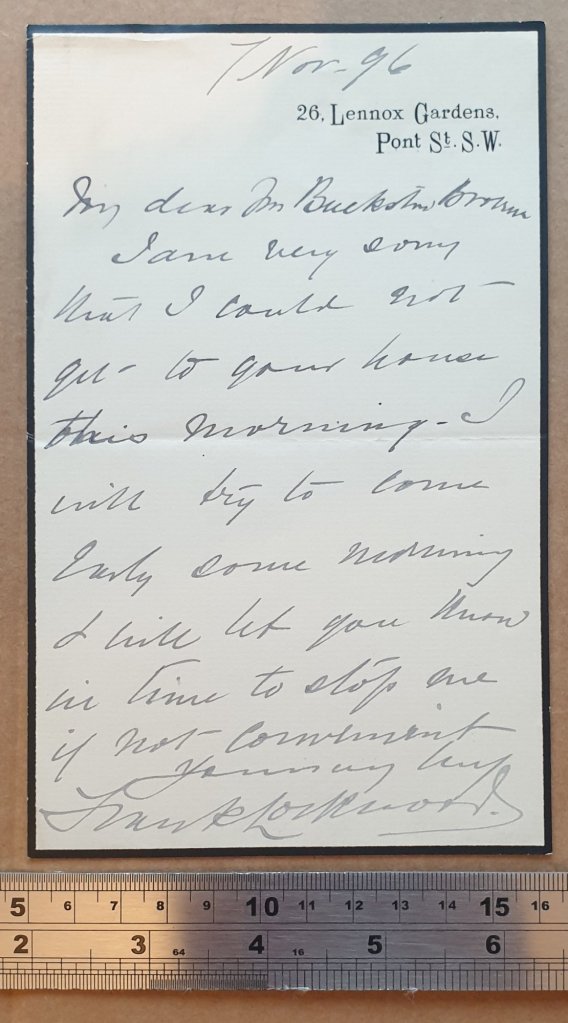 7 Nov. 96
26, Lennox Gardens,
Pont St. S.W.
My dear Mr Buckston Browne
I am very sorry
that I could not
get to your house
this morning - I
will try to come
Early some morning
& will let you know
in time to stop me
if not convenient
Yours very truly
Frank Lockwood.
5 6 7 8 9 10 11 12 13 14 15 16
2 3 64 4 16 5 6